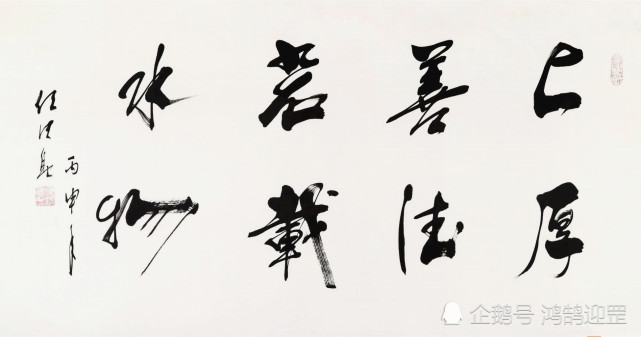 上善若水
厚德載物
丙申年
任法融
企鹅号 鸿鹄迎罡